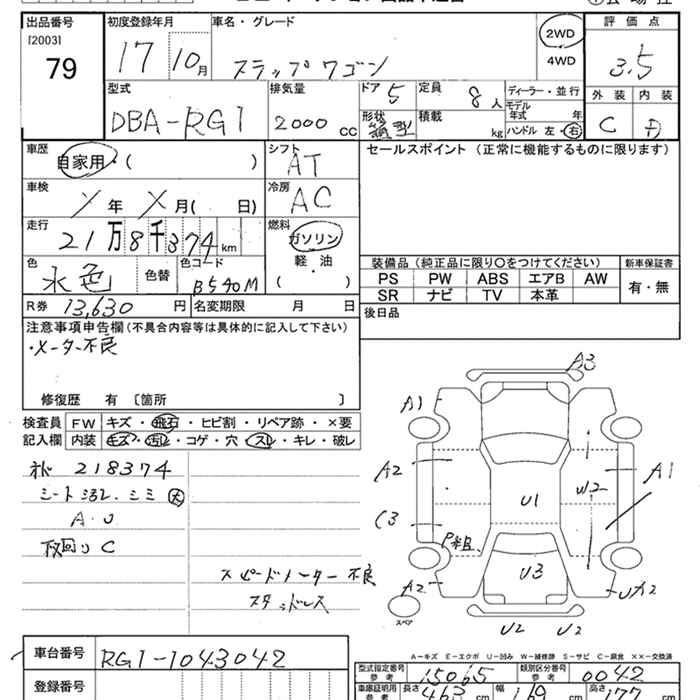 出品番号
[2003]
79
初度登録年月
17 10月
車名・グレード
ステップワゴン
2WD
4WD
評価点
3.5
外装 内装
C D
型式
DBA-RG1
排気量
2000 CC
ドア 5
形状
定員 8人
積載 kg
ディーラー・並行
モデル年式 年
ハンドル 左・右
車歴
自家用・( )
シフト
AT
セールスポイント (正常に機能するものに限ります)
車検
年 月( 日)
冷房
AC
走行
21万8千374km
燃料
ガソリン
軽・油
( )
色
水色
色替
色コード
B540M
装備品(純正品に限り○をつけてください)
PS PW ABS エアB AW
SR ナビ TV 本革
新車保証書
有・無
R券 13,630円
名変期限 月 日
後日品
注意事項申告欄(不具合内容等は具体的に記入して下さい)
・メーター不良
修復歴 有〔箇所 〕
検査員記入欄
FW キズ・飛石・ヒビ割・リペア跡・×要
内装 キズ・汚れ・コゲ・穴・スレ・キレ・破レ
218374
シート汚レ・シミ 大
A・U
下回りC
スピードメーター不良
スタッドレス
A3
A1
A2
A1
U1
U2
C3
U3
A2
UA2
スペア
U2 U2
A-キズ E-エクボ U-凹み W-補修跡 S-サビ C-腐食 ××-交換済
車台番号
RG1-1043042
登録番号
型式指定番号
参考
15065
類別区分番号
参考
0042
車庫証明用
参考
長さ
463 cm
幅
169 cm
高さ
177 cm